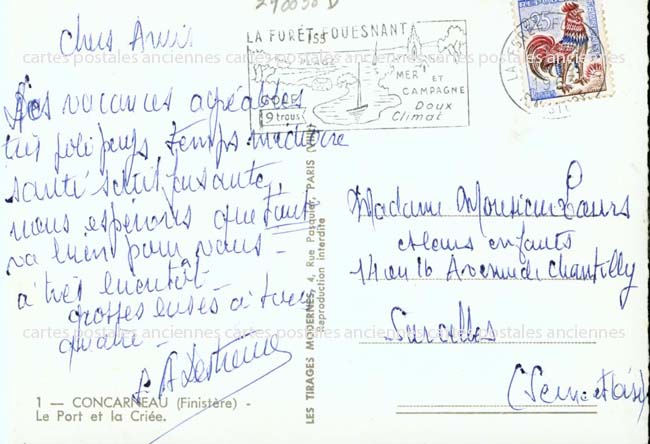 290050 D
Chers Amis
LA FORÊT-FOUESNANT
MER ET
CAMPAGNE
Doux
Climat
GOLF
9 trous
cartes postales anciennes cartes postales anciennes cartes postales anciennes
Des vacances agréables
très joli pays, temps médiocre
santé satisfaisante,
nous espérons que tout
va bien pour vous -
à très bientôt -
grosses bises à tous
quatre -
Madame Monsieur
et leurs enfants
14 ou 16 Avenue de Chantilly
Sarcelles
(Seine et Oise)
cartes postales anciennes cartes postales anciennes cartes postales anciennes
LES TIRAGES MODERNES, 4, Rue Pasquier, PARIS
Reproduction interdite
1 — CONCARNEAU (Finistère) -
Le Port et la Criée.